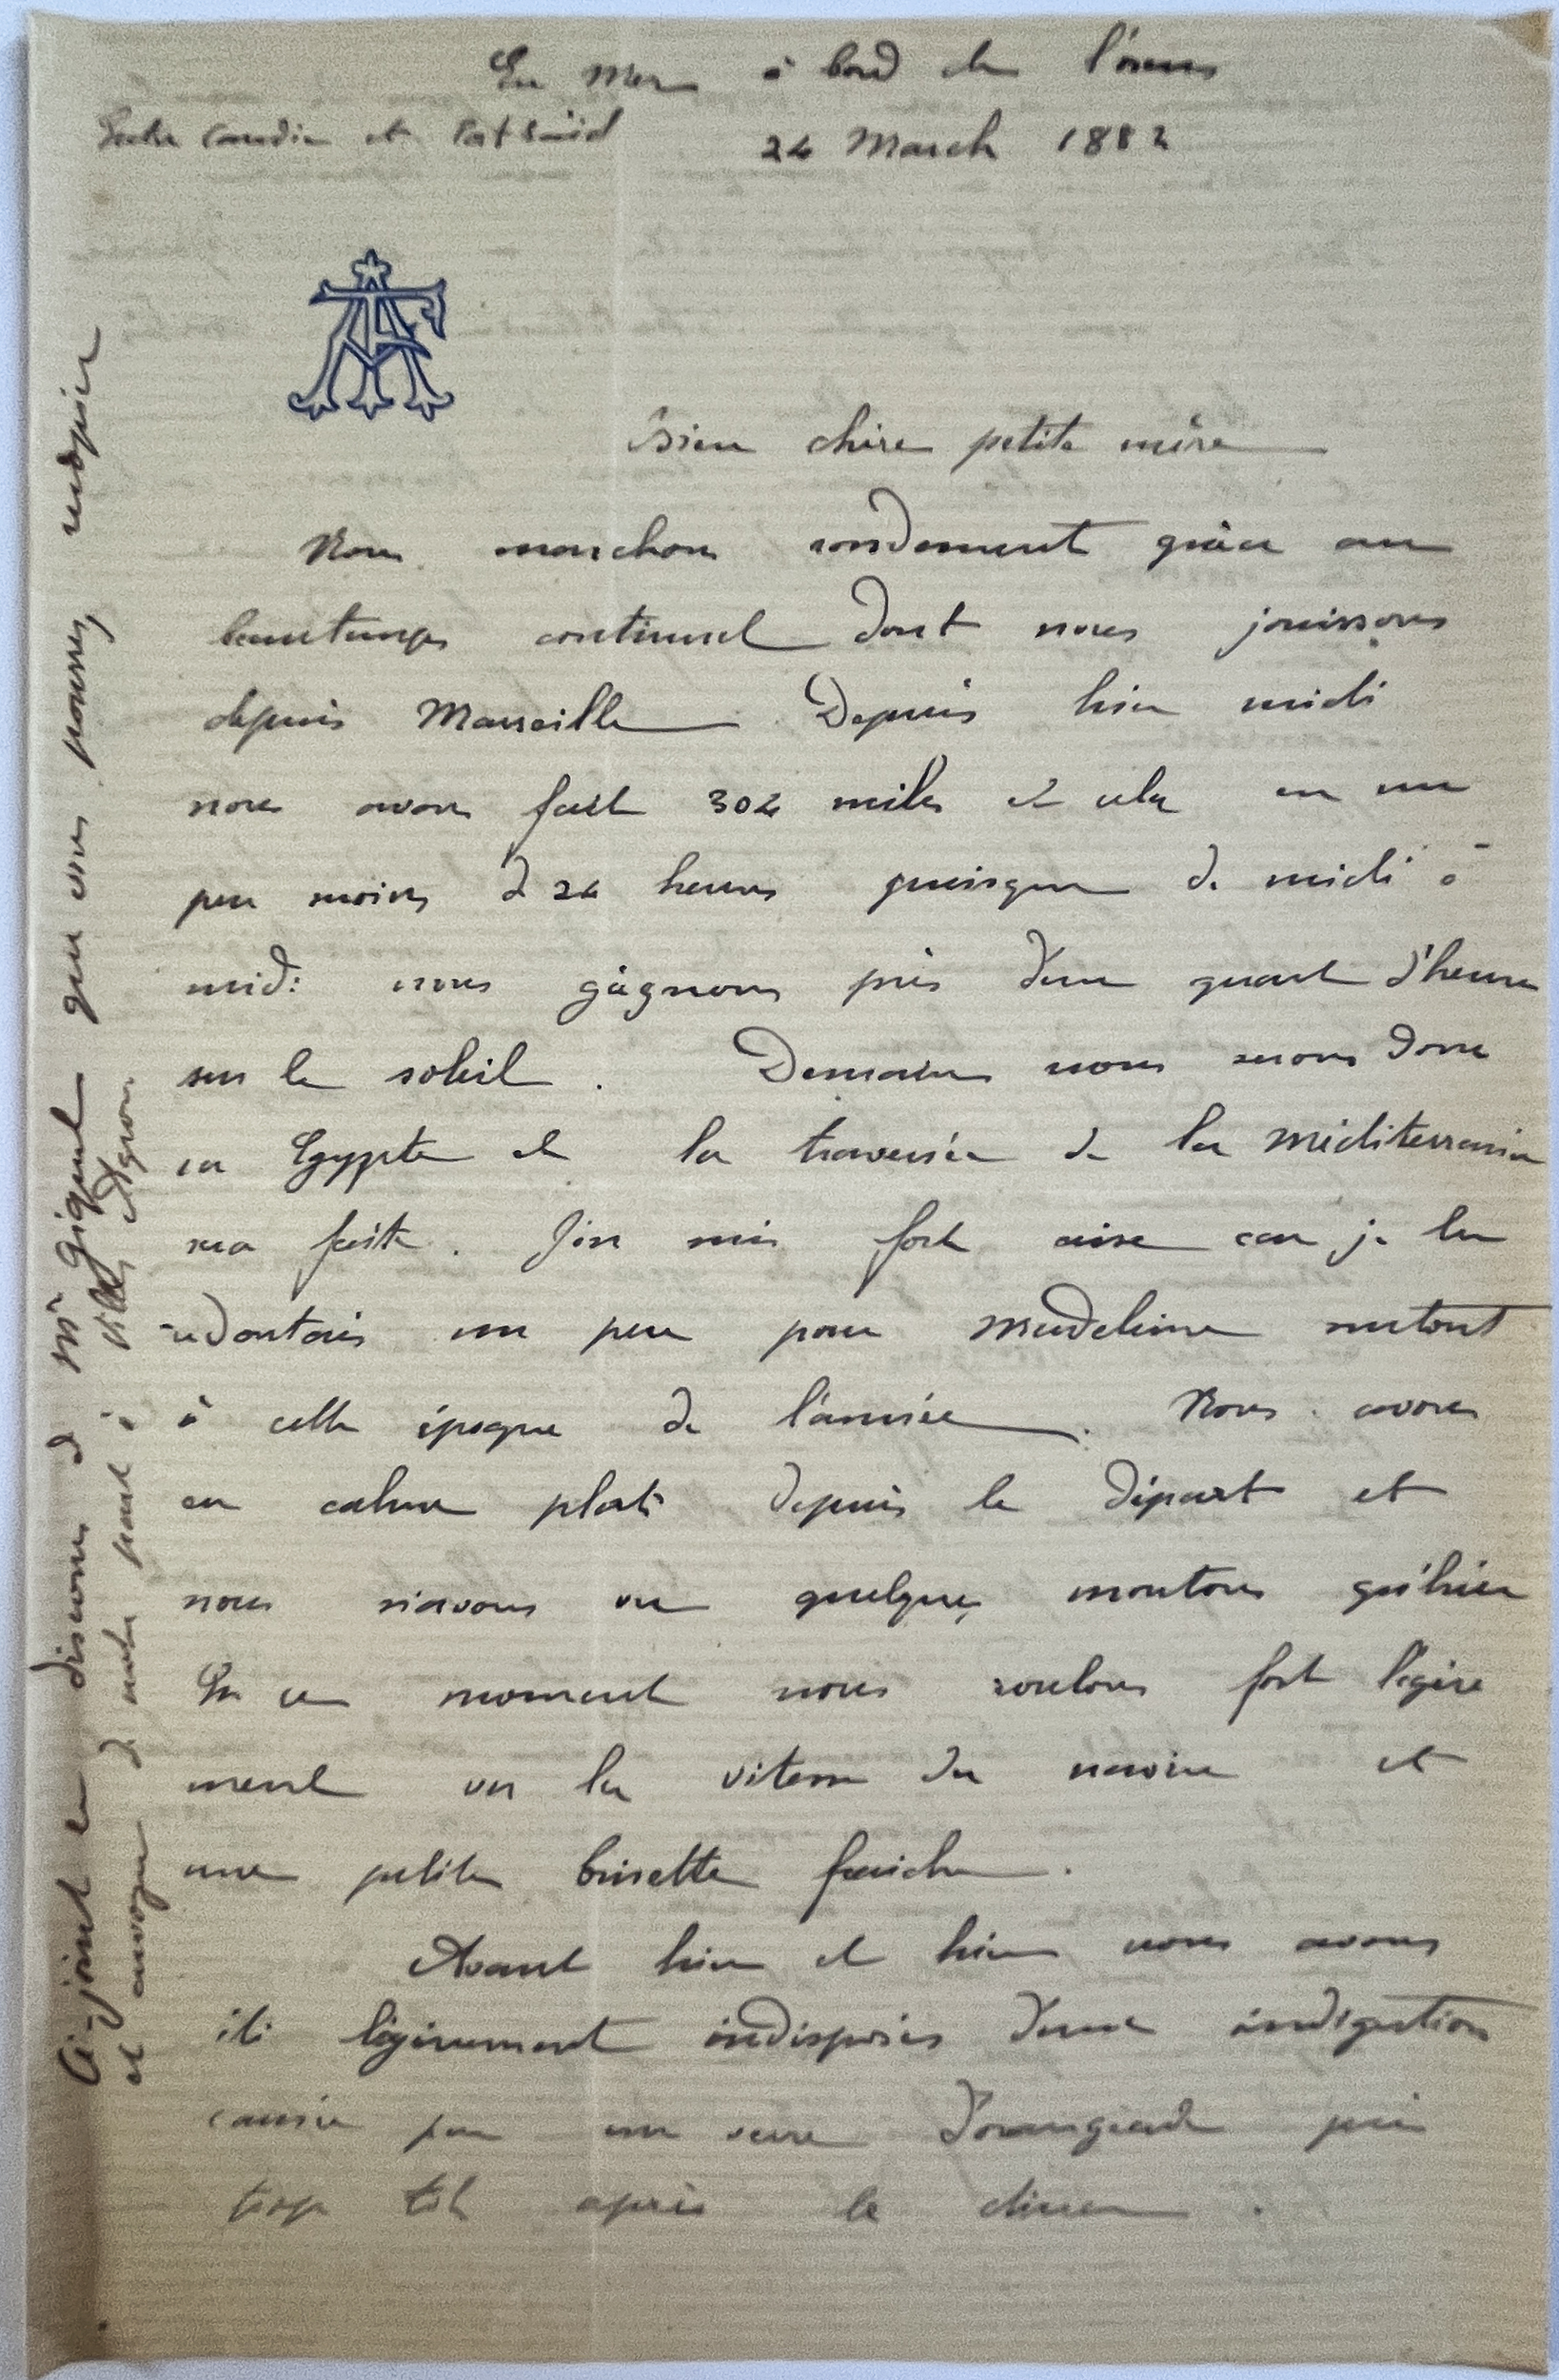 En Mer à bord de l'Oxus
Entre Candie et Port Saïd 24 March 1882
AF
Bien chère petite mère
Nous marchons rondement grâce au
beau temps continuel dont nous jouissons
depuis Marseille Depuis hier midi
nous avons fait 304 miles et cela en un
peu moins de 24 heures puisque de midi à
midi nous gâgnons près d'un quart d'heure
sur le soleil. Demain nous serons donc
en Egypte et la traversée de la méditerranée
sera faite. J'en suis fort aise car je la
redoutais un peu pour Madeleine surtout
à cette époque de l'année. Nous avons
eu calme plat depuis le départ et
nous n'avons vu quelques moutons qu'hier
En ce moment nous roulons fort légère
ment vu la vitesse du navire et
une petite brisette fraiche.
Avant hier et hier nous avons
été légèrement indisposés d'une indigestion
causée par un verre d'orangeade pris
trop tôt après le diner.
Ci-joint le discours de Mr Giquel que vous pourrez recopier
et envoyer de notre part à